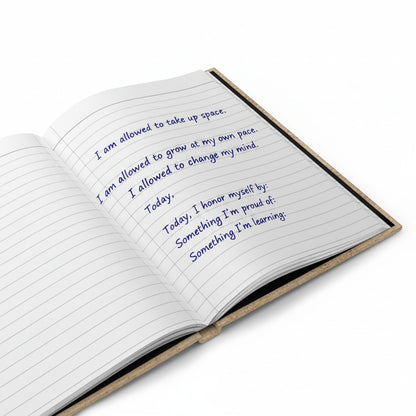 I am allowed to take up space.
I am allowed to grow at my own pace.
I allowed to change my mind.
Today,
Today, I honor myself by:
Something I'm proud of:
Something I'm learning: